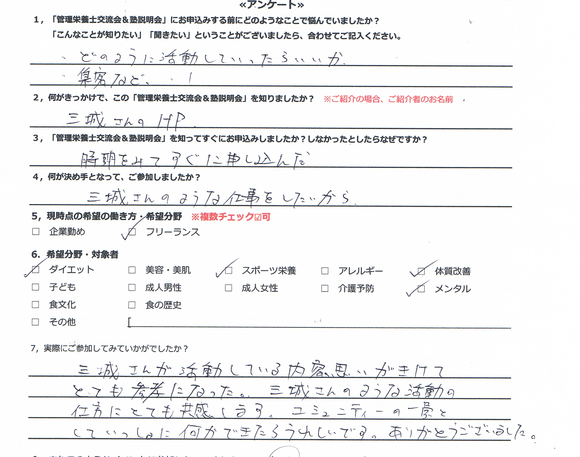 ≪アンケート≫
1，「管理栄養士交流会＆塾説明会」にお申込みする前にどのようなことで悩んでいましたか？
「こんなことが知りたい」「聞きたい」ということがございましたら、合わせてご記入ください。
・どのように活動していったらいいか
・集客など、・
2，何がきっかけで、この「管理栄養士交流会＆塾説明会」を知りましたか？ ※ご紹介の場合、ご紹介者のお名前
三城さんのHP.
3，「管理栄養士交流会＆塾説明会」を知ってすぐにお申込みしましたか？しなかったとしたらなぜですか？
時期をみてすぐに申し込んだ
4，何が決め手となって、ご参加しましたか？
三城さんのような仕事をしたいから
5，現時点の希望の働き方・希望分野 ※複数チェック☑可
☐ 企業勤め ☑ フリーランス
6．希望分野・対象者
☑ ダイエット ☐ 美容・美肌 ☑ スポーツ栄養 ☐ アレルギー ☑ 体質改善
☐ 子ども ☐ 成人男性 ☐ 成人女性 ☐ 介護予防 ☑ メンタル
☐ 食文化 ☐ 食の歴史
☐ その他 [
7，実際にご参加してみていかがでしたか？
三城さんが活動している内容思いがきけて
とても参考になった。三城さんのような活動の
仕方にとても共感します。コミュニティーの一員と
していっしょに何かできたらうれしいです。ありがとうございました。